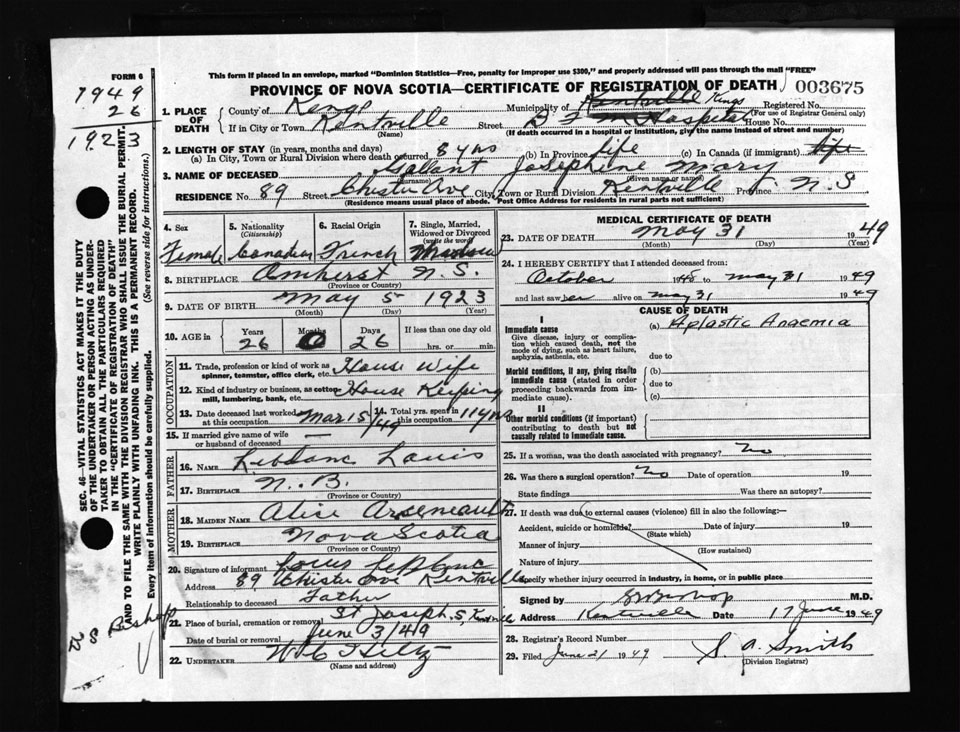 FORM 6
This form if placed in an envelope, marked "Dominion Statistics—Free, penalty for improper use $300," and properly addressed will pass through the mail "FREE"
PROVINCE OF NOVA SCOTIA—CERTIFICATE OF REGISTRATION OF DEATH
003675
1949
26
1923
1. PLACE OF DEATH
County of Kings Municipality of Kentville Kings Registered No.
(For use of Registrar General only)
If in City or Town Kentville Street Hospital House No.
(Name) (If death occurred in a hospital or institution, give the name instead of street and number)
2. LENGTH OF STAY (in years, months and days)
(a) In City, Town or Rural Division where death occurred 8 yrs (b) In Province life (c) In Canada (if immigrant) life
3. NAME OF DECEASED Gallant Josephine Mary
(Given name or names)
RESIDENCE No. 89 Street Chister Ave City, Town or Rural Division Kentville Province N.S
(Residence means usual place of abode. Post Office Address for residents in rural parts not sufficient)
4. Sex Female
5. Nationality (Citizenship) Canadian
6. Racial Origin French
7. Single, Married, Widowed or Divorced (write the word)
8. BIRTHPLACE Amherst N.S.
(Province or Country)
9. DATE OF BIRTH May 5 1923
(Month) (Day) (Year)
10. AGE in Years 26 Months 0 Days 26 If less than one day old hrs. or min.
OCCUPATION
11. Trade, profession or kind of work as spinner, teamster, office clerk, etc. House Wife
12. Kind of industry or business, as cotton-mill, lumbering, bank, etc. House Keeping
13. Date deceased last worked at this occupation Mar 15/49 14. Total yrs. spent in this occupation 11 yrs
15. If married give name of wife or husband of deceased —
FATHER
16. NAME Leblanc Louis
17. BIRTHPLACE N.B.
(Province or Country)
MOTHER
18. MAIDEN NAME Alice Arseneault
19. BIRTHPLACE Nova Scotia
(Province or Country)
20. Signature of informant Louis LeBlanc
Address 89 Chister Ave Kentville
Relationship to deceased Father
21. Place of burial, cremation or removal St Joseph,s, Kentville
Date of burial or removal June 3/49
22. UNDERTAKER W.C Hiltz
(Name and address)
MEDICAL CERTIFICATE OF DEATH
23. DATE OF DEATH May 31 1949
(Month) (Day) (Year)
24. I HEREBY CERTIFY that I attended deceased from:
October 1948 to May 31 1949
and last saw er alive on May 31 1949
CAUSE OF DEATH
I
Immediate cause
Give disease, injury or complication which caused death, not the mode of dying, such as heart failure, asphyxia, asthenia, etc.
(a) Aplastic Anaemia
due to
Morbid conditions, if any, giving rise to immediate cause (stated in order proceeding backwards from immediate cause).
(b)
due to
(c)
II
Other morbid conditions (if important) contributing to death but not causally related to immediate cause.
25. If a woman, was the death associated with pregnancy? No
26. Was there a surgical operation? No Date of operation 19
State findings Was there an autopsy?
27. If death was due to external causes (violence) fill in also the following:—
Accident, suicide or homicide? Date of injury 19
(State which)
Manner of injury
(How sustained)
Nature of injury
Specify whether injury occurred in industry, in home, or in public place
Signed by M.D.
Address Kentville Date 17 June 1949
28. Registrar's Record Number
29. Filed June 21 1949 S. A. Smith
(Division Registrar)
SEC. 46—VITAL STATISTICS ACT MAKES IT THE DUTY
OF THE UNDERTAKER OR PERSON ACTING AS UNDER-
TAKER TO OBTAIN ALL THE PARTICULARS REQUIRED
IN THE "CERTIFICATE OF REGISTRATION OF DEATH"
AND TO FILE THE SAME WITH THE DIVISION REGISTRAR WHO SHALL ISSUE THE BURIAL PERMIT.
WRITE PLAINLY WITH UNFADING INK. THIS IS A PERMANENT RECORD.
Every item of information should be carefully supplied. (See reverse side for instructions.)
Bishop